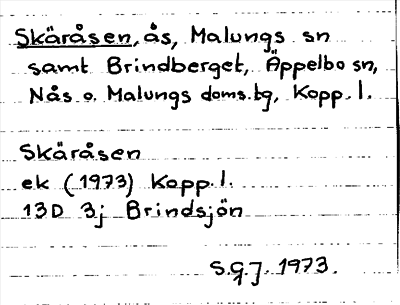 Skäråsen, ås, Malungs sn
samt Brindberget, Äppelbo sn,
Nås o. Malungs doms.tg, Kopp. l.
Skäråsen
ek (1973) Kopp. l.
13D 3j Brindsjön
S.G.J. 1973.